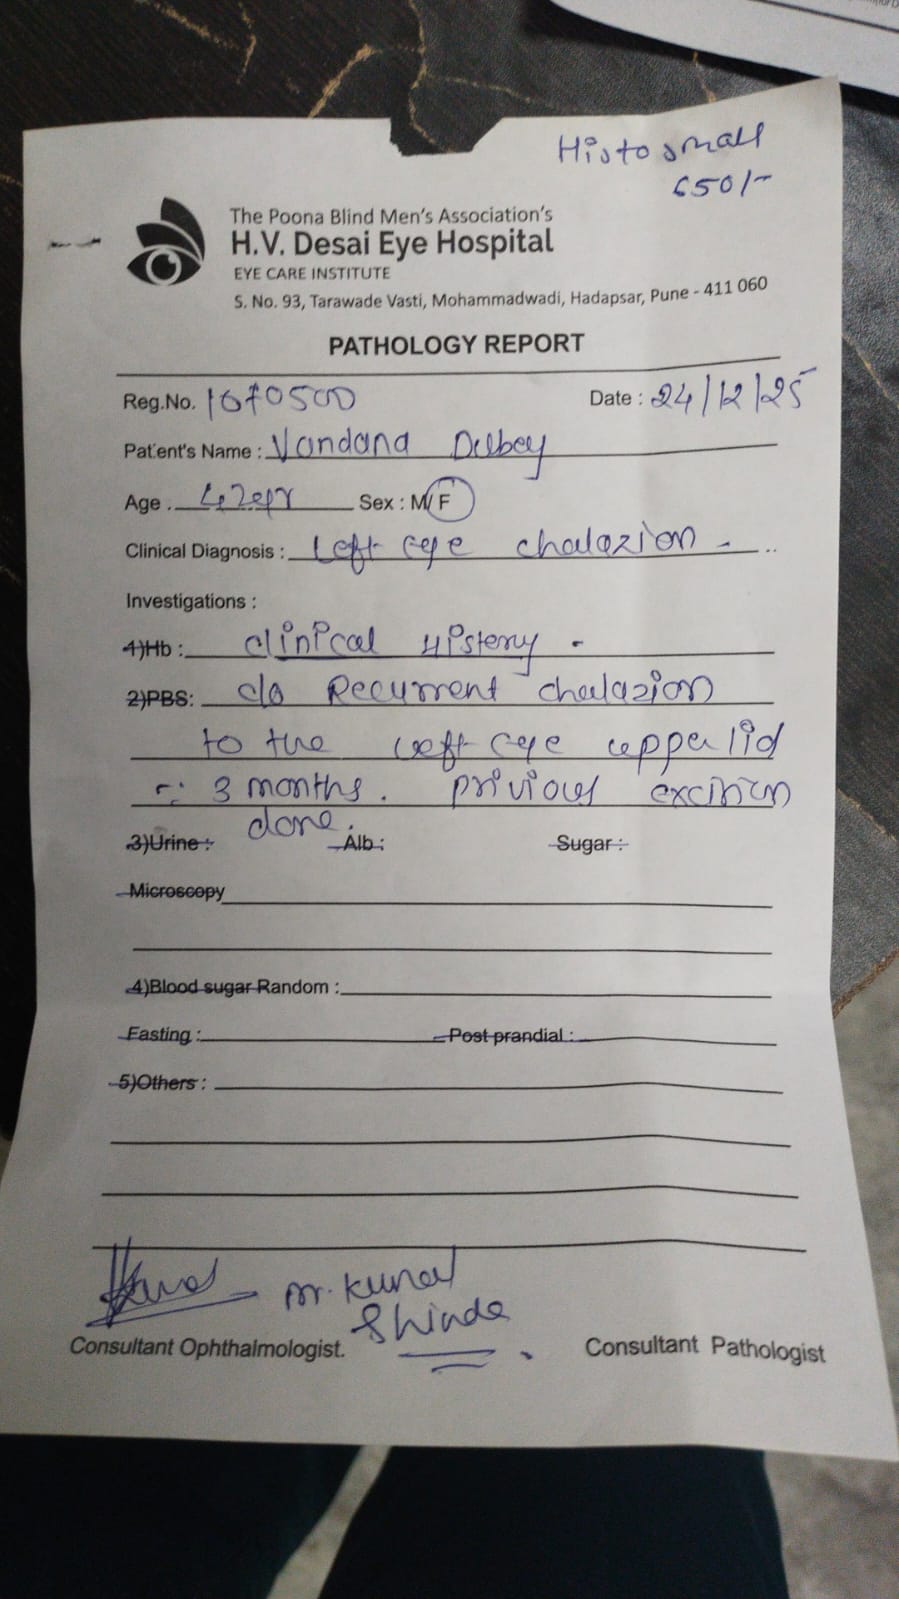 Histo small
650/-
The Poona Blind Men's Association's
H.V. Desai Eye Hospital
EYE CARE INSTITUTE
S. No. 93, Tarawade Vasti, Mohammadwadi, Hadapsar, Pune - 411 060
PATHOLOGY REPORT
Reg.No. Date : 24/12/25
Patient's Name : Vandana
Age : 42 Sex : M/F
Clinical Diagnosis : Left eye chalazion -
Investigations :
1)Hb : clinical History -
2)PBS: c/o Recurrent chalazion
to the Left eye upper lid
3 months. privious excision
done.
3)Urine : Alb : Sugar :
Microscopy
4)Blood sugar Random :
Fasting : Post prandial :
5)Others :
Dr. Kunal
Shinde
Consultant Ophthalmologist. Consultant Pathologist